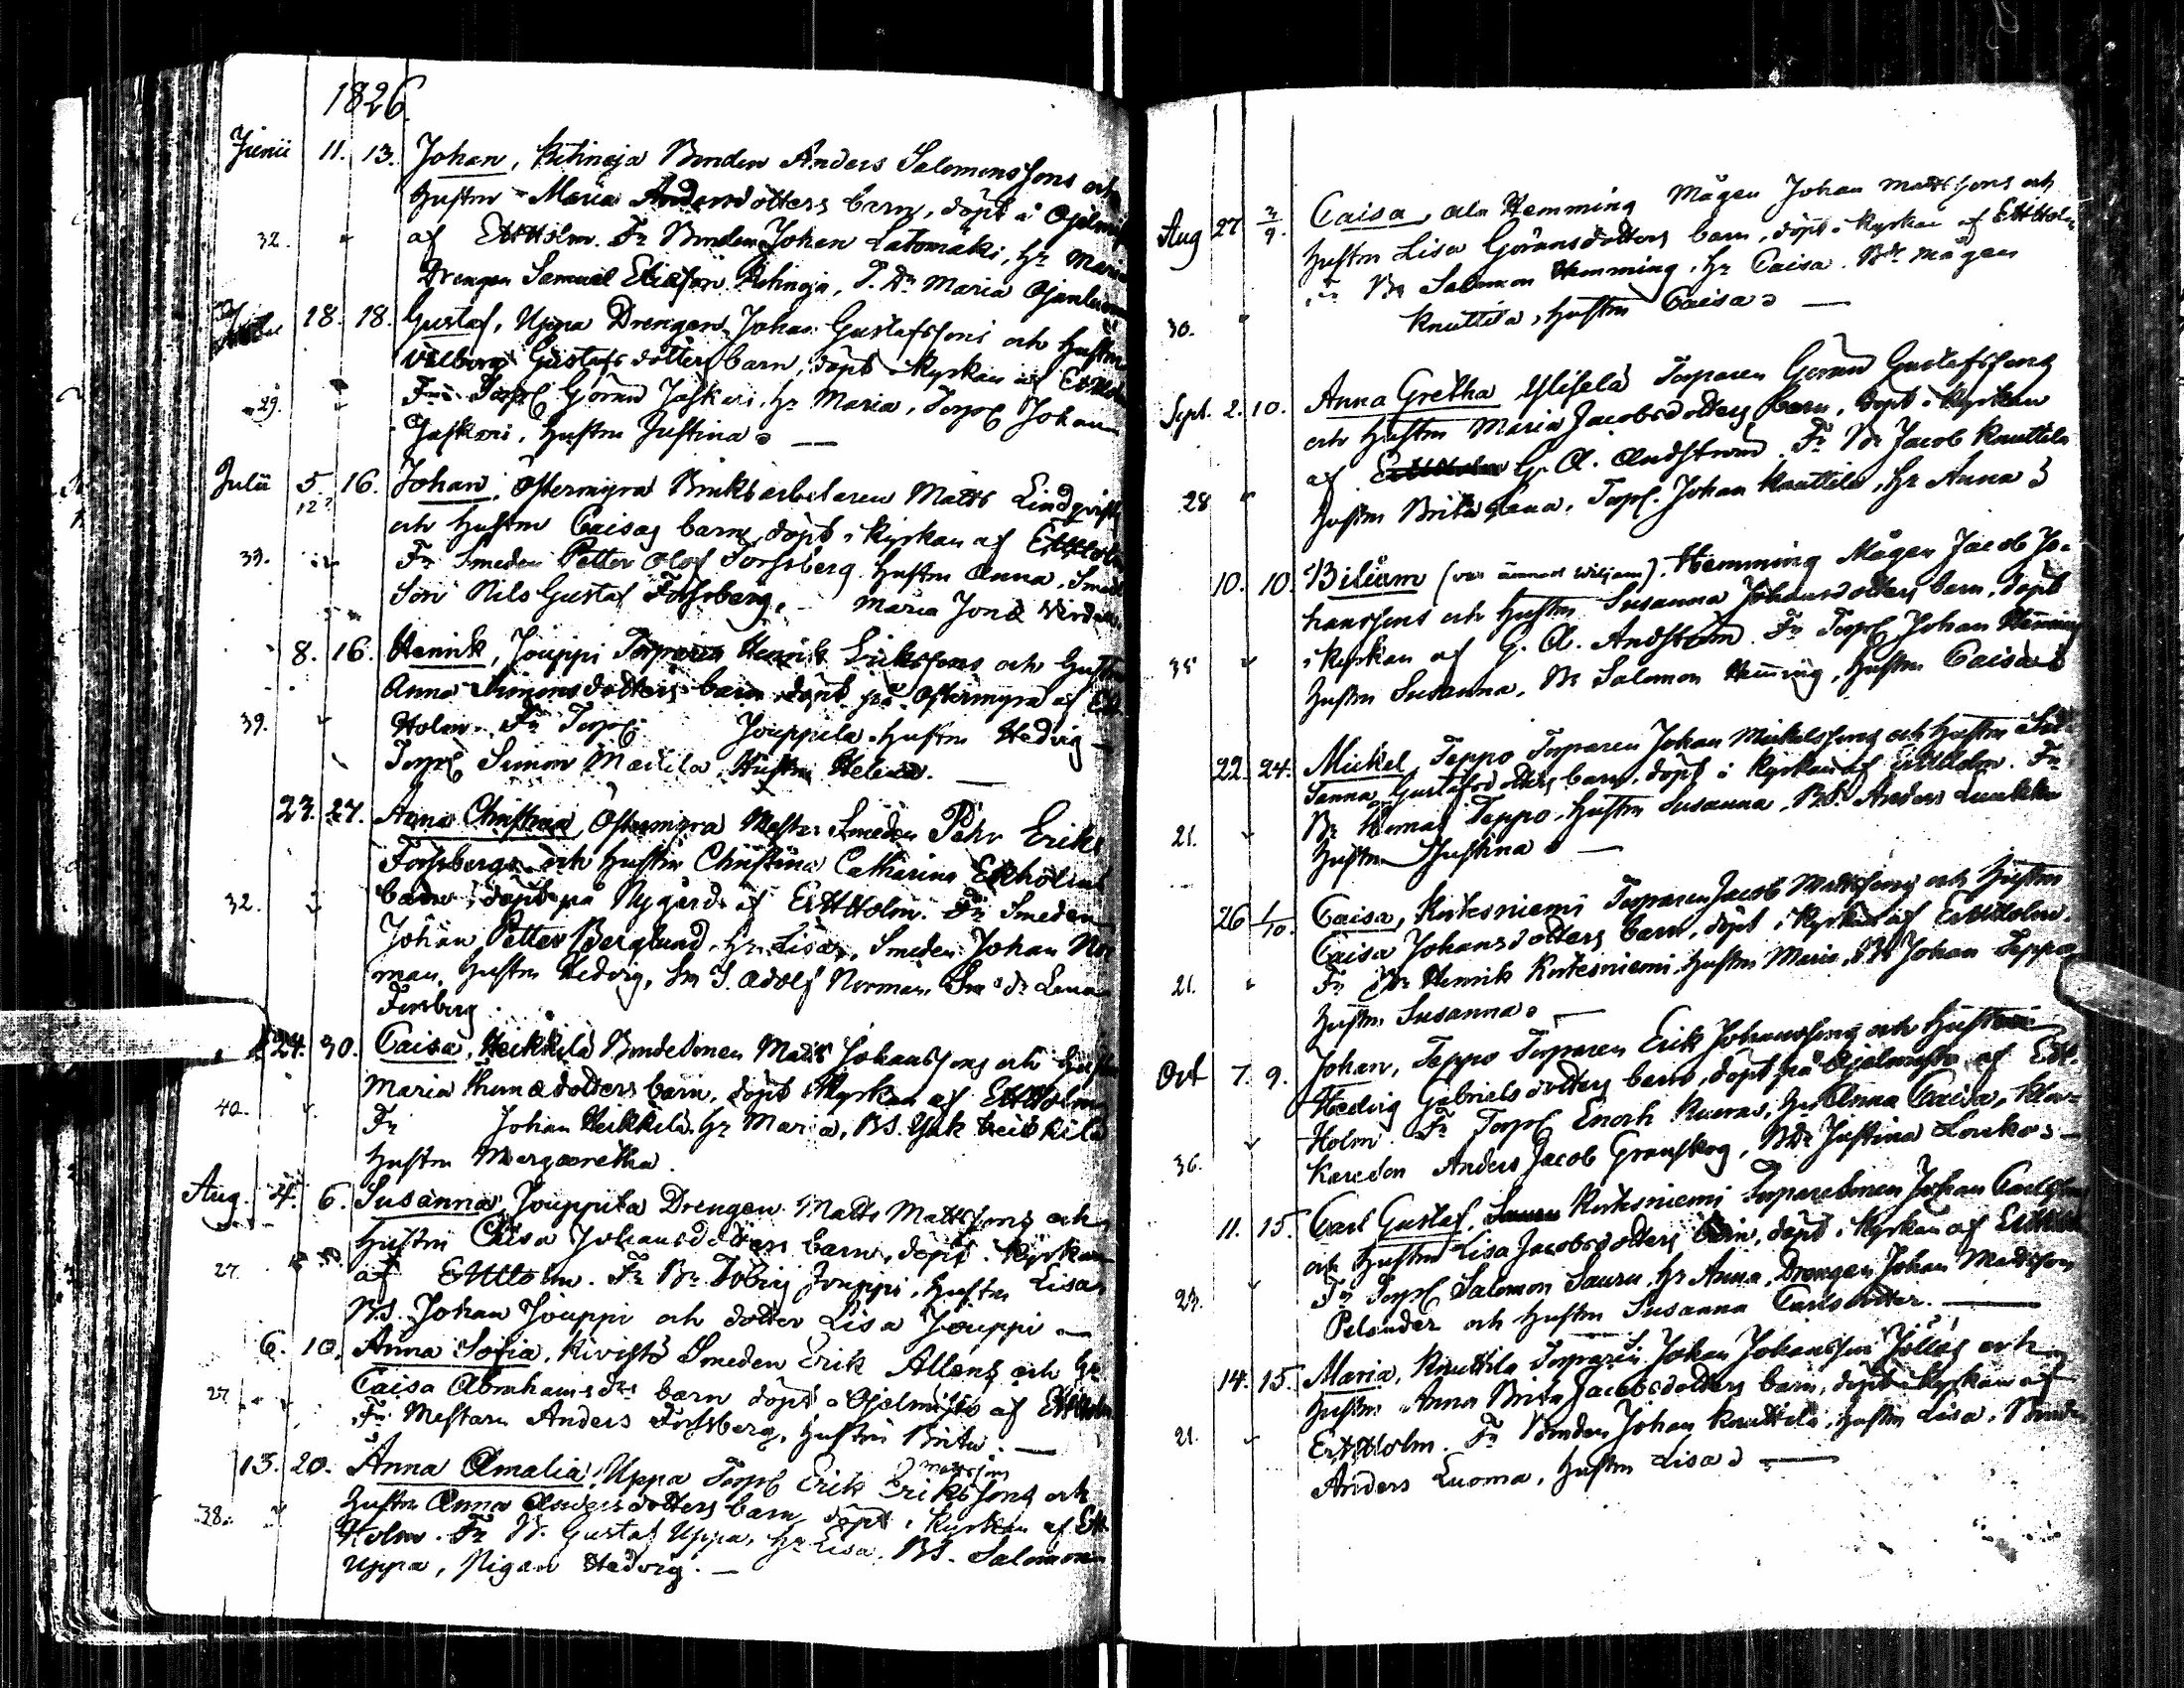 1826.
Junii 11. 13. Johan, Ketinoja Bonden Anders Salomonssons och
Hustru Maria Andersdotters barn, döpt å
32. af EHHolm. Fr Bonden Johan Latomäki, Hr Maria
Drengen Samuel Eliasson Ketinoja, Maria
18. 18. Gustaf, Uppa Drengen Johan Gustafssons och Hustru
Valborg Gustafsdotters barn, döpt i kyrkan af
29. Fr Torp Göran Jaskari, Hr Maria, Torp Johan
Jaskari, Hustru Justina
Julii 5 16. Johan, Östermyra Bruksarbetaren Matts Lindqvists
12?
och Hustru Caisas barn, döpt i kyrkan af EHHolm
33. Fr Smeden Petter Olof Forssberg Hustru Anna, Smed
Son Nils Gustaf Forssberg, Maria Jona
8. 16. Henrik, Jouppi Torparen Henrik Erikssons och Hustru
Anna Simonsdotters barn döpt på Östermyra af EH
39. Holm. Fr Torp Jouppila Hustru Hedvig
Torp Simon Marttila Hustru Helena.
23. 27. Anna Christina, Östermyra Mästar Smeden Pehr Erik
Forssbergs och Hustru Christina Catharina Ekholms
32. barn, döpt på Nygård af EHHolm. Fr Smeden
Johan Petter Berglund, Hr Lisa, Smeden Johan Nor
man, Hustru Hedvig, Sm S. Adolf Norman Sm dr Lena
Forsberg
24. 30. Caisa, Heikkilä Bondesonen Matts Johanssons och Hustru
Maria Thomædotters barn, döpt i kyrkan af EHHolm
40. Fr Johan Heikkilä Hr Maria, BS. Isak Heikkilä
Hustru Margaretha.
Aug. 4. 6. Susanna, Jouppila Drengen Matts Mattssons och
Hustru Caisa Johansdotters barn, döpt i kyrkan
27. af EHHolm. Fr Br Tobias Jouppi, Hustru Lisa,
BS. Johan Jouppi och dotter Lisa Jouppi
6. 10. Anna Sofia, Kivistö Smeden Erik Alléns och Hr
Caisa Abrahamsdrs barn döpt å af EHHolm
27. Fr Mästaren Anders Forssberg, Hustru Brita.
Mattsson
13. 20. Anna Amalia, Uppa Torp Erik Erikssons och
Hustru Anna Andersdotters barn, döpt i kyrkan af EH
38. Holm. Fr B. Gustaf Uppa, Hr Lisa, BS. Salomon
Uppa, Pigan Hedvig.
Aug 27 3/9. Caisa, Ala Hemming Mågen Johan Mattssons och
Hustru Lisa Göransdotters barn, döpt i kyrkan af EHHolm
Fr Br Salomon Hemming, Hr Caisa. Mågen
30. Knuttila, Hustru Caisa
Sept. 2. 10. Anna Gretha Ylisela Torparen Göran Gustafssons
och Hustru Maria Jacobsdotters barn, döpt i kyrkan
af G. A. Andström. Fr Br Jacob Knuttila
28 Hustru Brita Lena, Torp. Johan Knuttila, Hr Anna
10. 10. Biliam (var ämnat Wiljam). Hemming Mågen Jacob Jo-
hanssons och Hustru Susanna Johansdotters barn, döpt
35 i kyrkan af G. A. Andström. Fr Torp Johan Hemming
Hustru Susanna, Br Salomon Hemming, Hustru Caisa
22. 24. Mickel, Teppo Torparen Johan Mickelssons och Hustru Su-
sanna Gustafsdotters barn, döpt i kyrkan af EHHolm. Fr
21. Br Teppo, Hustru Susanna, Anders
Hustru Justina
26 1/10. Caisa, Kortesniemi Torparen Jacob Mattssons och Hustru
Caisa Johansdotters barn, döpt i kyrkan af EHHolm.
21. Fr Br Henrik Kortesniemi, Hustru Maria, Johan Teppo
Hustru Susanna
Oct 7. 9. Johan, Teppo Torparen Erik Johanssons och Hustru
Hedvig Gabrielsdotters barn, döpt på af EH
Holm. Fr Torp Enoch Hr Anna Caisa, Klåc-
36. karedon Anders Jacob Granskog, Justina Louko
11. 15. Carl Gustaf, Kortesniemi Torparesonen Johan Carlssons
och Hustru Lisa Jacobsdotters barn, döpt i kyrkan af EHHolm
23. Fr Torp Salomon Sauru, Hr Anna, Drengen Johan Mattsson
Pelander och Hustru Susanna Carlsdotter.
14. 15. Maria, Knuttila Torparen Johan Johansson och
Hustru Anna Brita Jacobsdotters barn, döpt i kyrkan af
21. EHHolm. Fr Bonden Johan Knuttila, Hustru Lisa, Bonden
Anders Luoma, Hustru Lisa